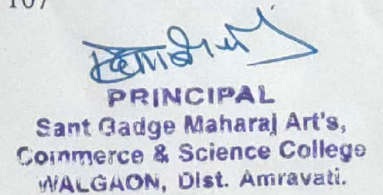 107
PRINCIPAL
Sant Gadge Maharaj Art's,
Commerce & Science College
WALGAON, Dist. Amravati.